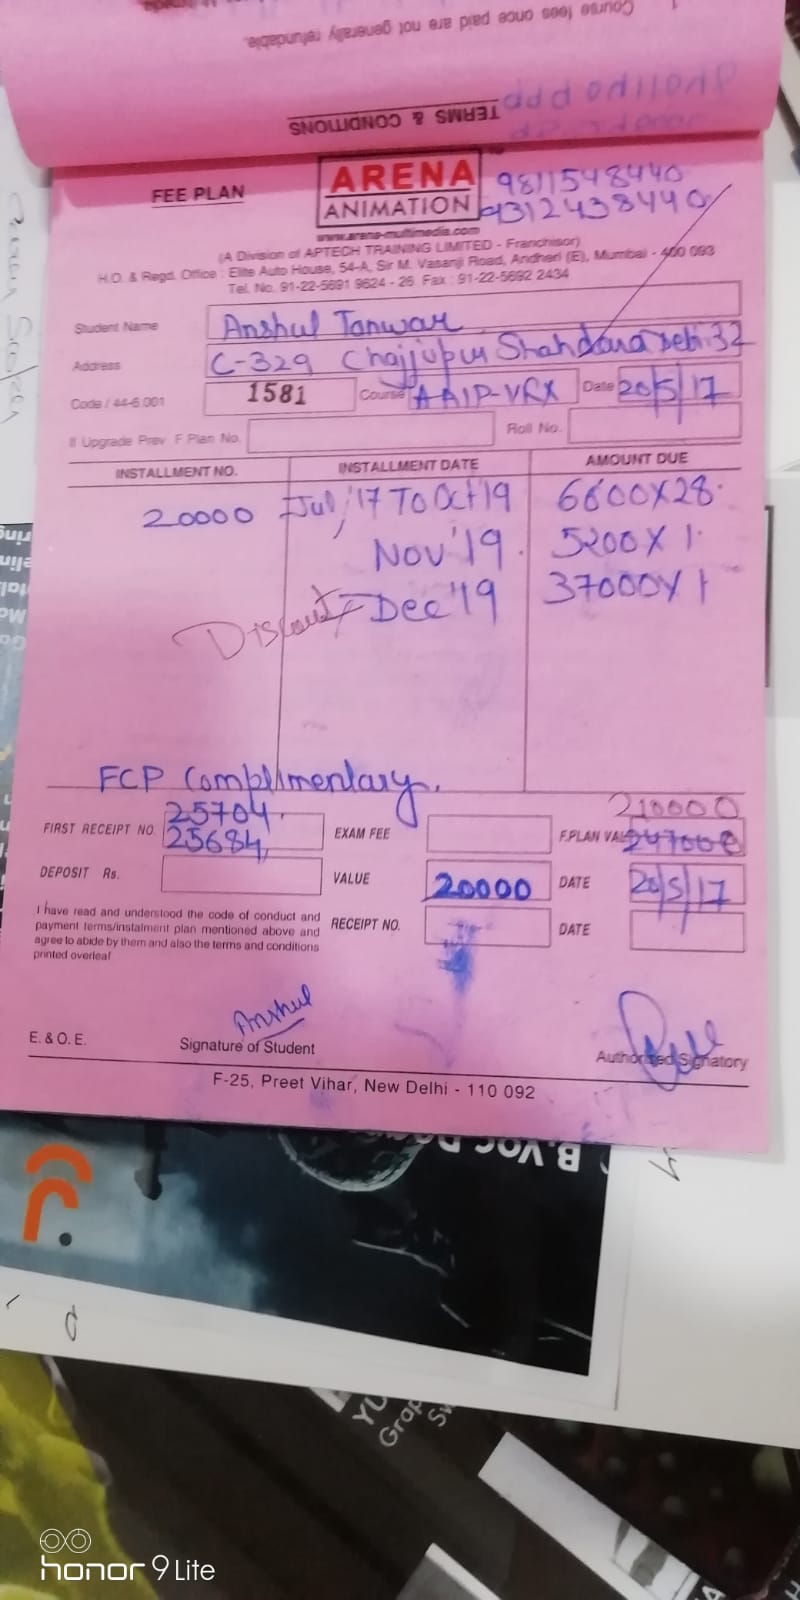 1. Course fees once paid are not generally refundable.
TERMS & CONDITIONS
FEE PLAN
ARENA
ANIMATION
9811548440
9312438440
www.arena-multimedia.com
(A Division of APTECH TRAINING LIMITED - Franchisor)
H.O. & Regd. Office : Elite Auto House, 54-A, Sir M. Vasanji Road, Andheri (E), Mumbai - 400 093
Tel. No. 91-22-5691 9624 - 26 Fax : 91-22-5692 2434
Student Name Anshul Tanwar
Address C-329 Chajjupur Shahdara Delhi-32
Code / 44-6.001 1581 Course AAIP-VRX Date 20/5/17
If Upgrade Prev F Plan No. Roll No.
INSTALLMENT NO. INSTALLMENT DATE AMOUNT DUE
20000 Jul,'17 TO Oct'19 6600X28
Nov'19 5200X1
Discount Dec'19 37000X1
FCP Complimentary.
210000
25704
FIRST RECEIPT NO. 25684 EXAM FEE F.PLAN VAL 247000
DEPOSIT Rs. VALUE 20000 DATE 20/5/17
I have read and understood the code of conduct and
payment terms/instalment plan mentioned above and
agree to abide by them and also the terms and conditions
printed overleaf
RECEIPT NO. DATE
Anshul
E. & O. E. Signature of Student Authorised Signatory
F-25, Preet Vihar, New Delhi - 110 092
B.Voc
honor 9 Lite